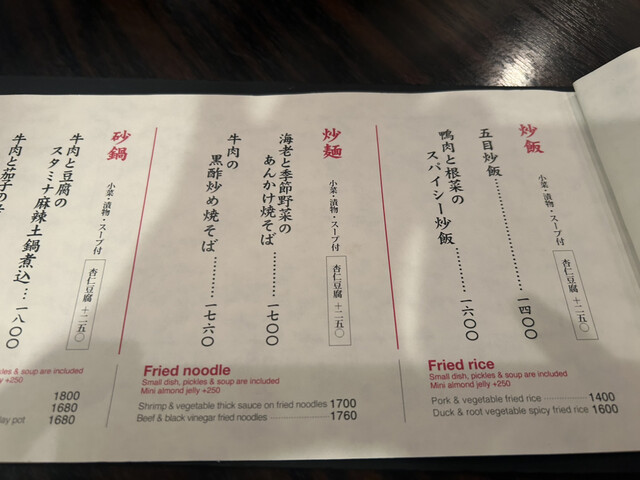 炒飯
小菜・漬物・スープ付
杏仁豆腐 +二五〇
五目炒飯………………一四〇〇
鴨肉と根菜の
スパイシー炒飯………一六〇〇
炒麺
小菜・漬物・スープ付
杏仁豆腐 +二五〇
海老と季節野菜の
あんかけ焼そば………一七〇〇
牛肉の
黒酢炒め焼そば………一七六〇
砂鍋
小菜・漬物・スープ付
杏仁豆腐 +二五〇
牛肉と豆腐の
スタミナ麻辣土鍋煮込…一八〇〇
牛肉と茄子の
kles & soup are included
ly +250
1800
1680
lay pot 1680
Fried noodle
Small dish, pickles & soup are included
Mini almond jelly +250
Shrimp & vegetable thick sauce on fried noodles 1700
Beef & black vinegar fried noodles 1760
Fried rice
Small dish, pickles & soup are included
Mini almond jelly +250
Pork & vegetable fried rice 1400
Duck & root vegetable spicy fried rice 1600